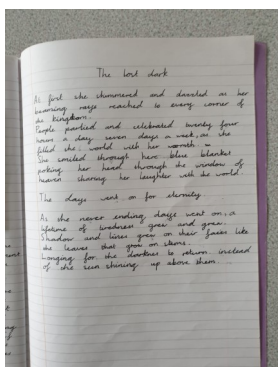 The lost dark
At first she shimmered and dazzled as her
beaming rays reached to every corner of
the kingdom.
People partied and celebrated twenty four
hours a day seven days a week, as she
filled the world with her warmth.
She smiled through her blue blanket
poking her head through the window of
heaven sharing her laughter with the world.
The days went on for eternity.
As the never ending days went on, a
lifetime of tiredness grew and grew.
Shadow and lines grew on their faces like
the leaves that grow on stems.
Longing for the darkness to return instead
of the sun shining up above them.